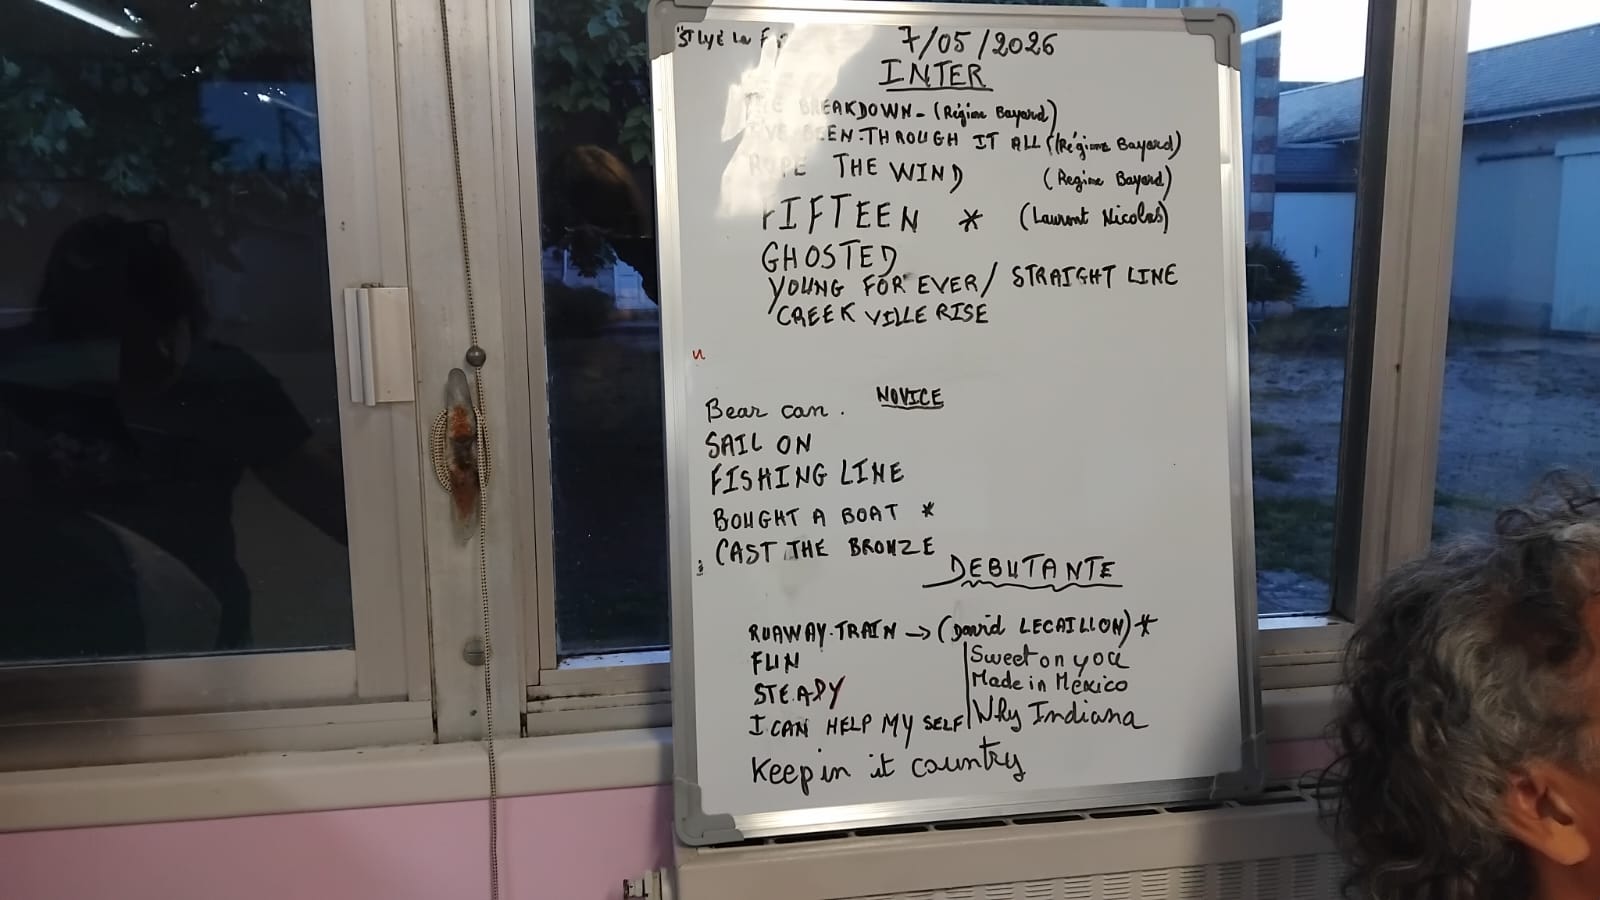 St Lyé La
7/05/2026
INTER
BREAKDOWN - (Régine Bayard)
I'VE BEEN THROUGH IT ALL (Régine Bayard)
ROPE THE WIND (Regine Bayard)
FIFTEEN * (Laurent Nicolas)
GHOSTED
YOUNG FOR EVER / STRAIGHT LINE
CREEK VILLE RISE
NOVICE
Bear can.
SAIL ON
FISHING LINE
BOUGHT A BOAT *
CAST THE BRONZE
DEBUTANTE
RUAWAY-TRAIN → (David LECAILLON) *
FUN
Sweet on you
STEADY
Made in México
I CAN HELP MY SELF
Why Indiana
Keep in it country